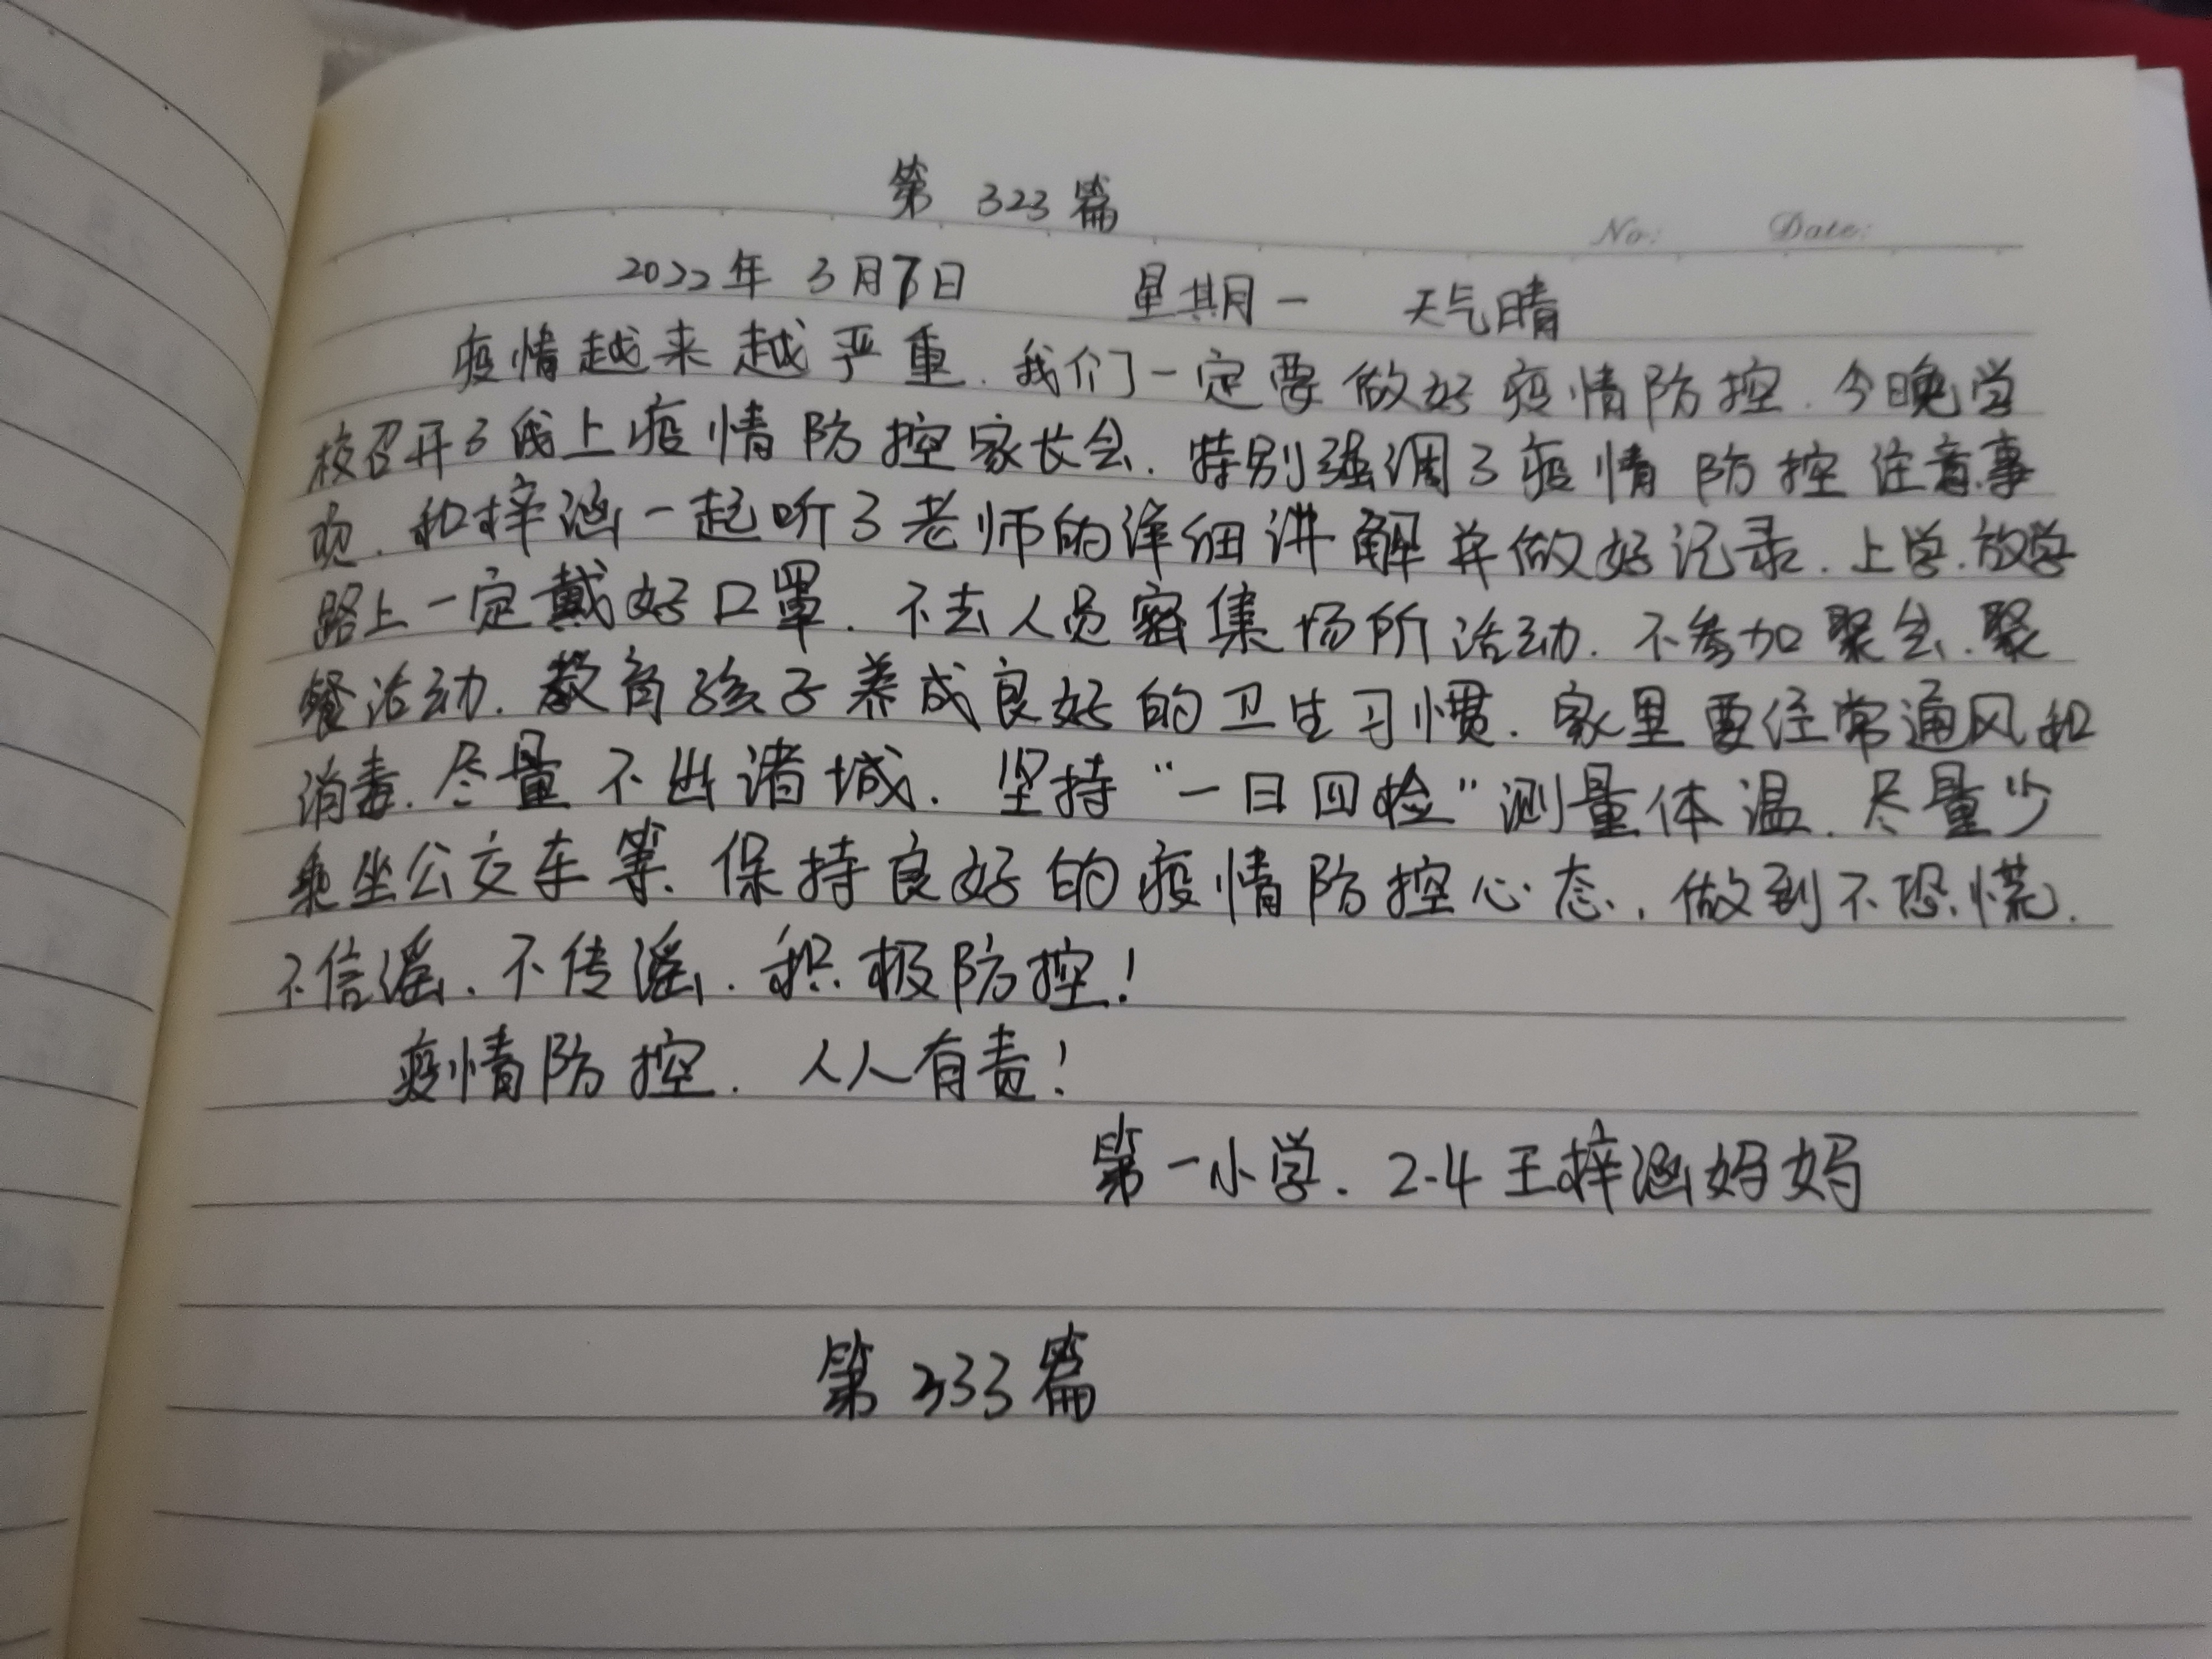 第 323 篇
No: Date:
2022年 3月7日 星期一 天气晴
疫情越来越严重.我们一定要做好疫情防控.今晚学
校召开了线上疫情防控家长会.特别强调了疫情防控注意事
项.和梓涵一起听了老师的详细讲解并做好记录.上学.放学
路上一定戴好口罩.不去人员密集场所活动.不参加聚会.聚
餐活动.教育孩子养成良好的卫生习惯.家里要经常通风和
消毒.尽量不出诸城.坚持“一日四检”测量体温.尽量少
乘坐公交车等.保持良好的疫情防控心态.做到不恐慌.
不信谣.不传谣.积极防控!
疫情防控.人人有责!
第一小学.2-4王梓涵妈妈
第 333 篇